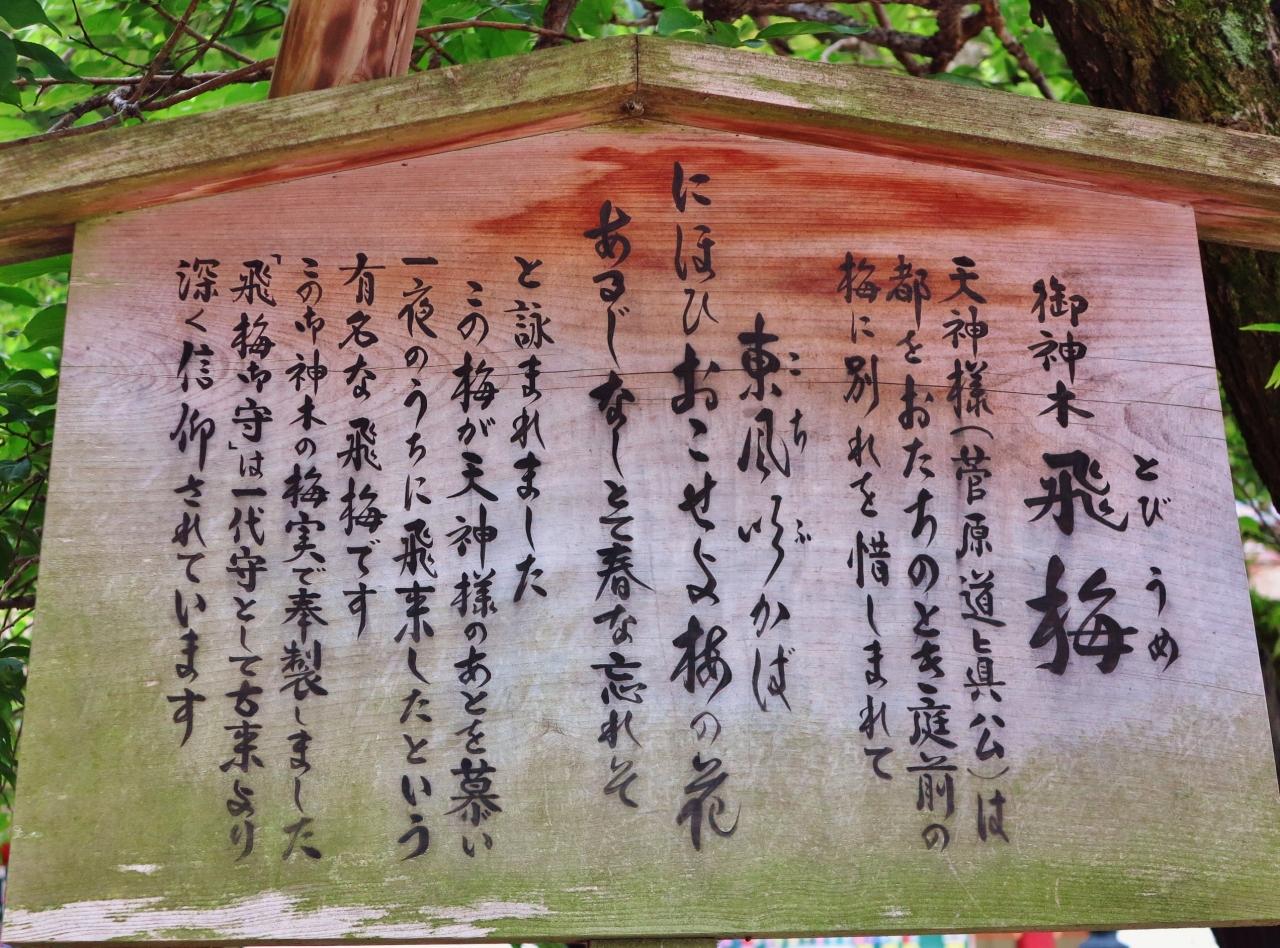 御神木 飛梅
とび うめ
天神様(菅原道真公)は
都をおたちのとき庭前の
梅に別れを惜しまれて
東風吹かば
こち ふ
にほひおこせよ梅の花
あるじなしとて春な忘れそ
と詠まれました
この梅が天神様のあとを慕い
一夜のうちに飛来したという
有名な飛梅です
この御神木の梅実で奉製しました
「飛梅御守」は一代守として古来より
深く信仰されています